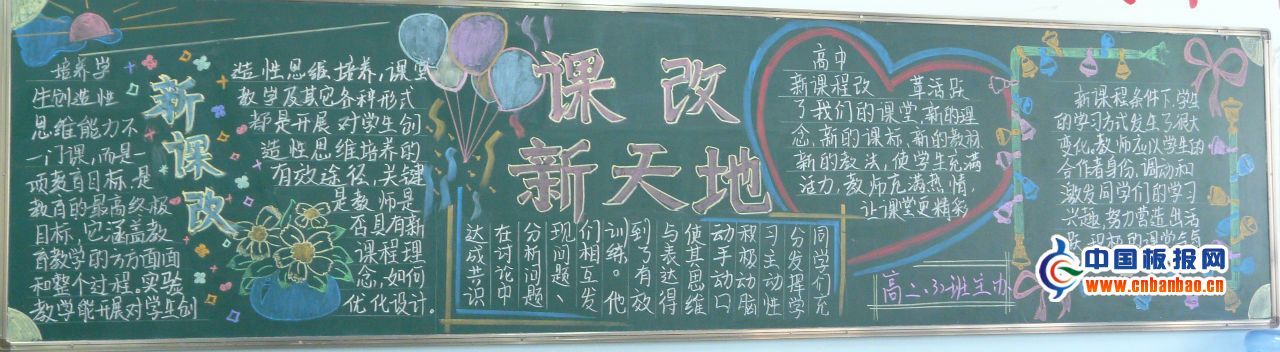 培养学
生创造性
思维能力不
一门课,而是一
项教育目标,是
教育的最高终极
目标,它涵盖教
育教学的方方面面
和整个过程。实验
教学能开展对学生创
新课改
造性思维培养,课堂
教学及其它各种形式
都是开展对学生创
造性思维培养的
有效途径,关键
是教师是
否具有新
课程理
念,如何
优化设计。
课改
新天地
同学们充
分发挥学
习主动性
积极动脑
动手动口
使其思维
与表达得
到了有效
训练。他
们相互发
现问题、
分析问题
在讨论中
达成共识
高中
新课程改 革活跃
了我们的课堂,新的理
念,新的课标,新的教材
新的教法,使学生充满
活力,教师充满热情,
让课堂更精彩
高二.3班主办
新课程条件下,学生
的学习方式发生了很大
变化,教师正以学生的
合作者身份,调动和
激发同学们的学习
兴趣,努力营造生活
中国板报网
www.cnbanbao.cn